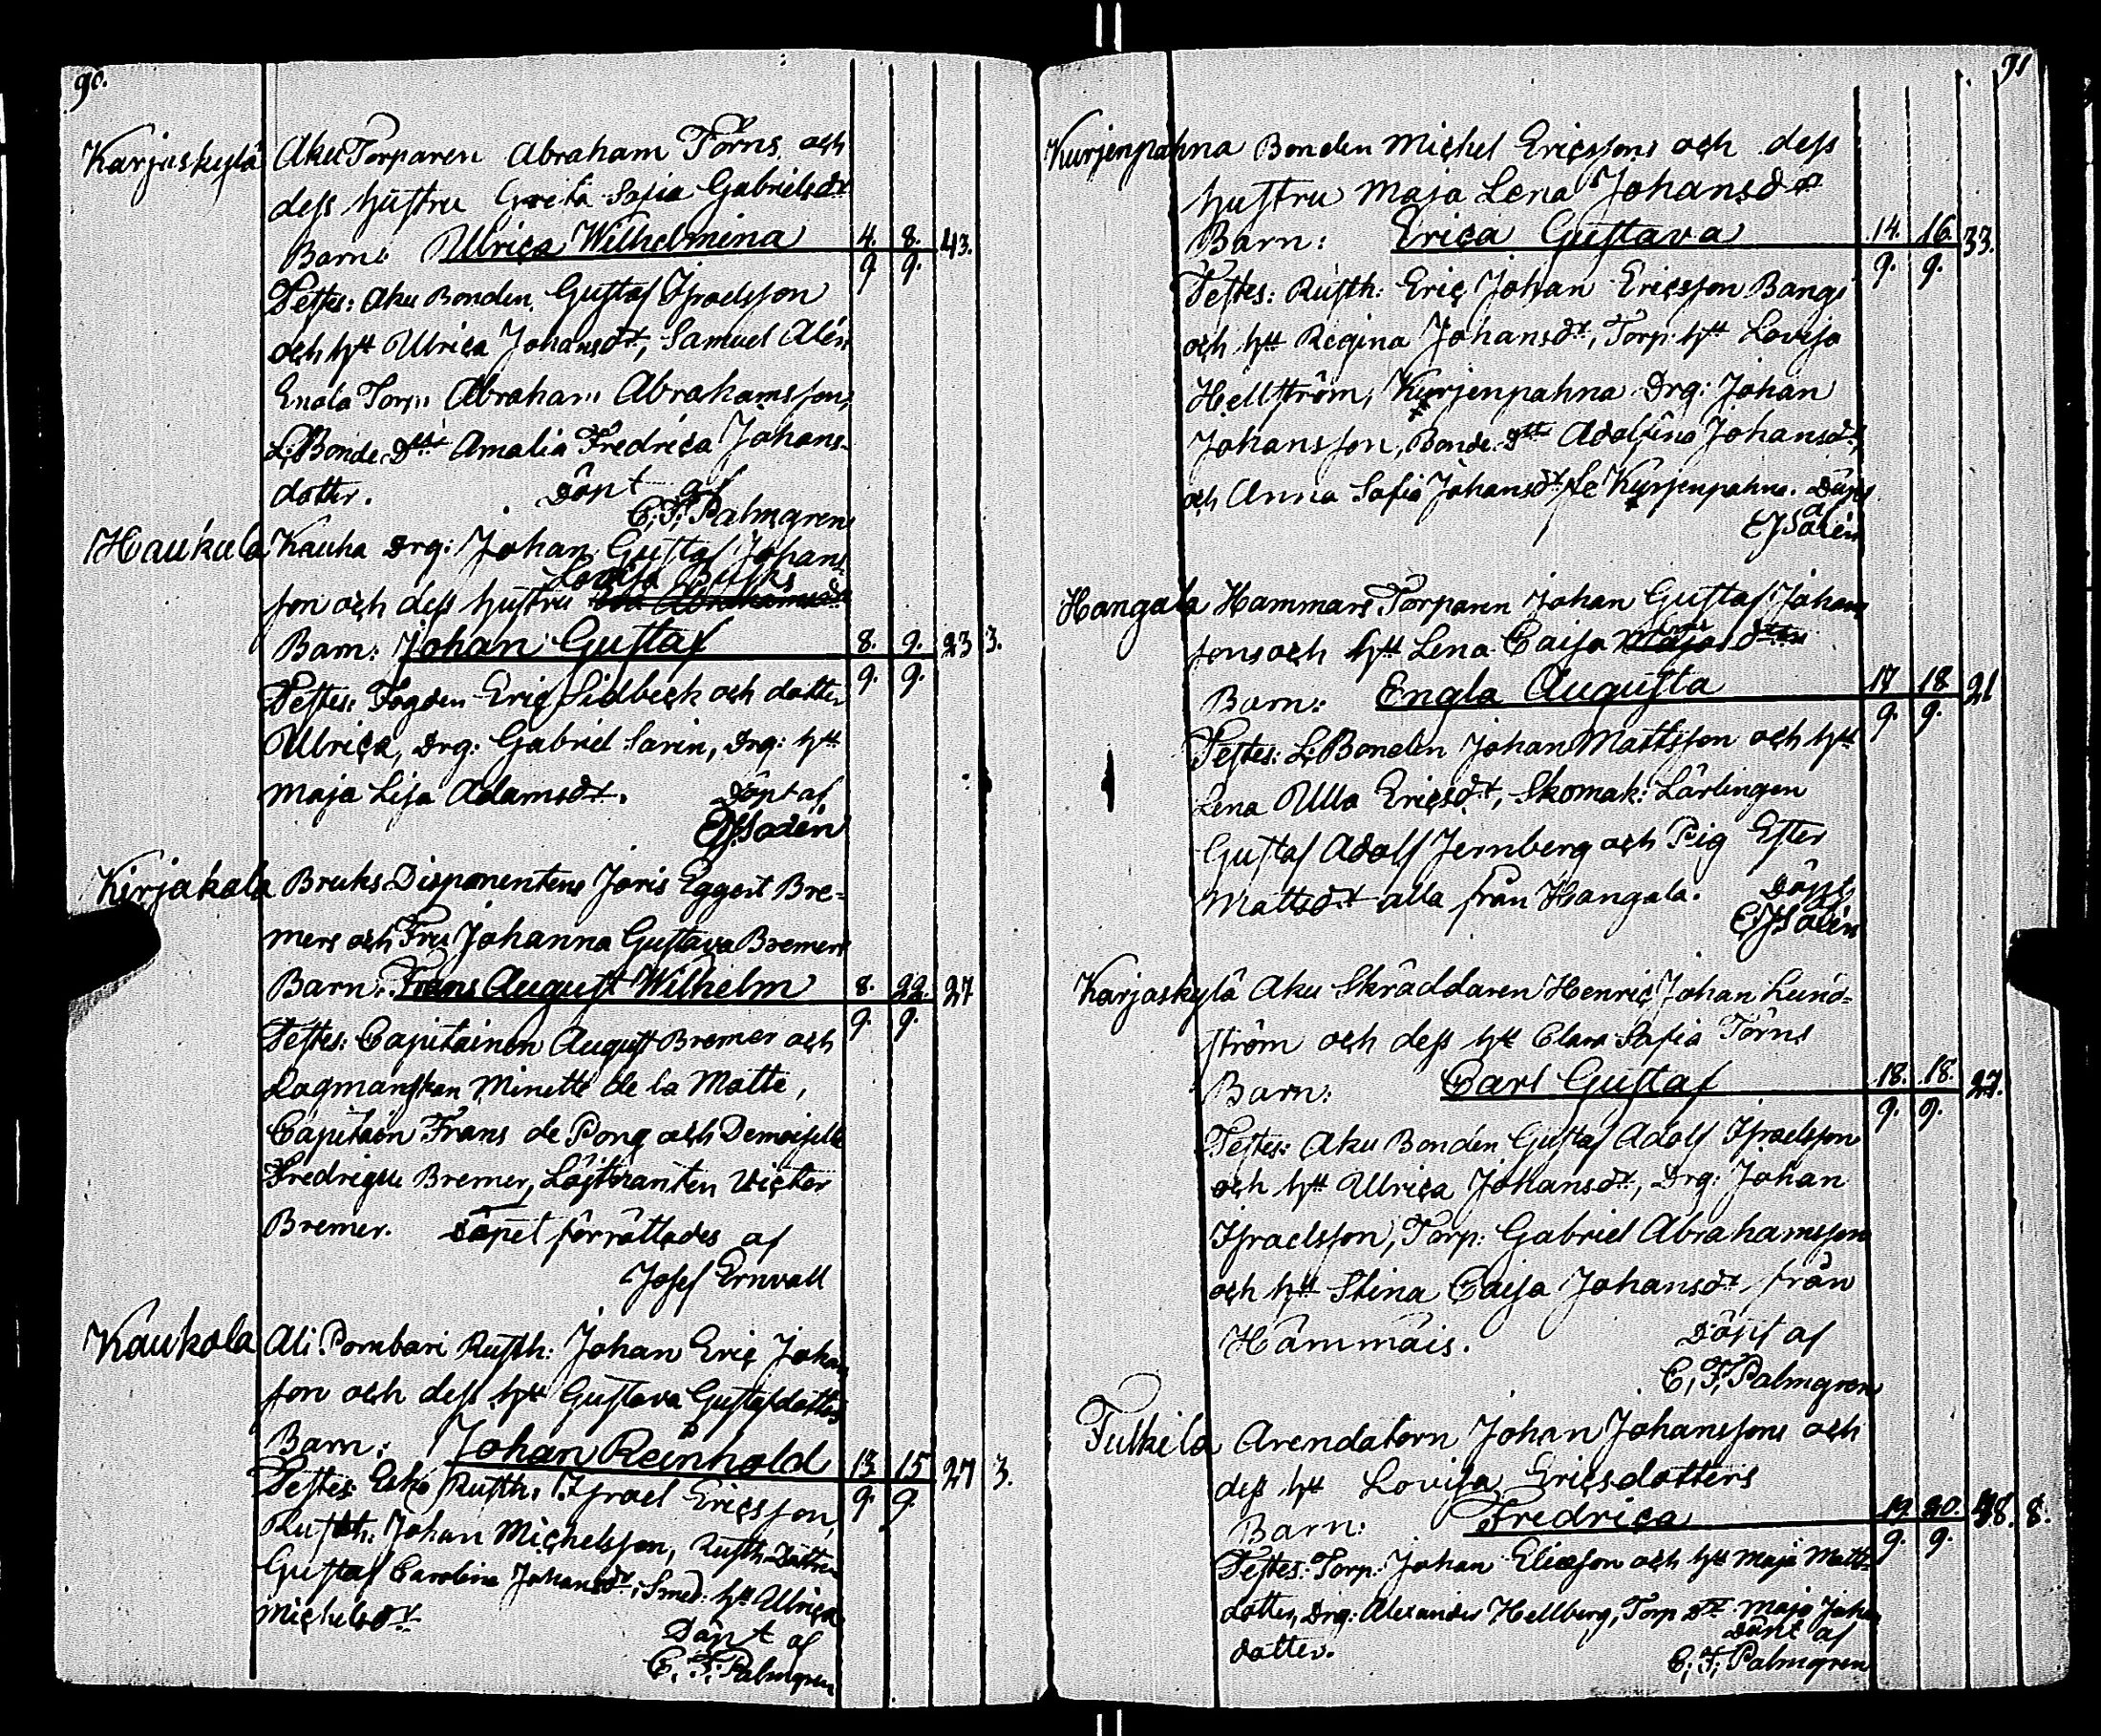 90.
Karjaskylä Aku Torparen Abraham Törns och
dess hustru Greta Sofia Gabrielsdr
Barn: Ulrica Wilhelmina 4. 8. 43.
9 9.
Testes: Aku Bonden Gustaf Israelsson
och hu Ulrica Johansdr, Samuel Alén
Torp: Abraham Abrahamsson,
L: Bonde Dtt Amalia Fredrica Johans-
dotter. Döpt af
C. F. Palmgren
Haukula Kauha Drg: Johan Gustaf Johans
son och dess hustru Lovisa
Barn: Johan Gustaf 8. 9. 23 3.
9. 9.
Testes: Fogden Eric Sidbeck och dotter
Ulrica, Drg: Gabriel Sarin, Drg: htt
Maja Lisa Adamsdr. Döpt af
Kirjakala Bruks Disponentens Joris Eggert Bre-
mers och Fru Johanna Gustava Bremers
Barn: Frans August Wilhelm 8. 22. 27
9. 9.
Testes: Capitainen August Bremer och
Lagmanskan Minette de la Motte,
Capitain Frans de Pong och Demoiselle
Fredrique Bremer, Löjtnanten Victor
Bremer. Döpet förrättades af
Josef Ernvall
Kaukola Ali Pombari Rusth: Johan Eric Johan
son och dess htt Gustava Gustafsdotters
Barn: Johan Reinhold 13 15 27 3.
9. 9
Testes: Rusth: Israel Ericsson,
Rusth: Johan Michelsson, Rusth Dotter
Gustaf Carolina Johansdr, Smed: htt Ulrica
Michelsdr
Döpt af
C. F. Palmgren
91
Kurjenpahna Bonden Michel Ericssons och dess
hustru Maja Lena Johansdr
Barn: Erica Gustava 14. 16. 33.
9. 9.
Testes: Rusth: Eric Johan Ericsson Bange
och htt Regina Johansdr, Torp: htt Lovisa
Hellström, Kurjenpahna Drg: Johan
Johansson, Bonde Dtt Adolfina Johansdr,
och Anna Sofia Johansdr fr Kurjenpahna. Döpt
Hangala Hammars Torparen Johan Gustaf Johans
sons och htt Lena Caisa
Barn: Engla Augusta 17 18 21
9. 9.
Testes: L: Bonden Johan Mattsson och htt
Lena Ulla Ericsdr, Skomak: Lärlingen
Gustaf Adolf Jernberg och Pig Ester
Mattsdr alla från Hangala. Döpt
Karjaskylä Aku Skräddaren Henric Johan Lund-
ström och dess htt Clara Sofia Törns
Barn: Carl Gustaf 18. 18. 27.
9. 9.
Testes: Aku Bonden Gustaf Adolf Israelsson
och htt Ulrica Johansdr, Drg: Johan
Israelsson, Torp: Gabriel Abrahamsson
och htt Stina Caisa Johansdr från
Hämmäis. Döpt af
C. F. Palmgren
Tulkila Arendatorn Johan Johanssons och
dess htt Lovisa Ericsdotters
Barn: Fredrica 19. 20. 38. 8.
9. 9.
Testes: Torp: Johan Eliasson och htt Maja Matts
dotter, Drg: Alexander Hellberg, Torp Dtr Maja Johans
dotter. Döpt af
C. F. Palmgren